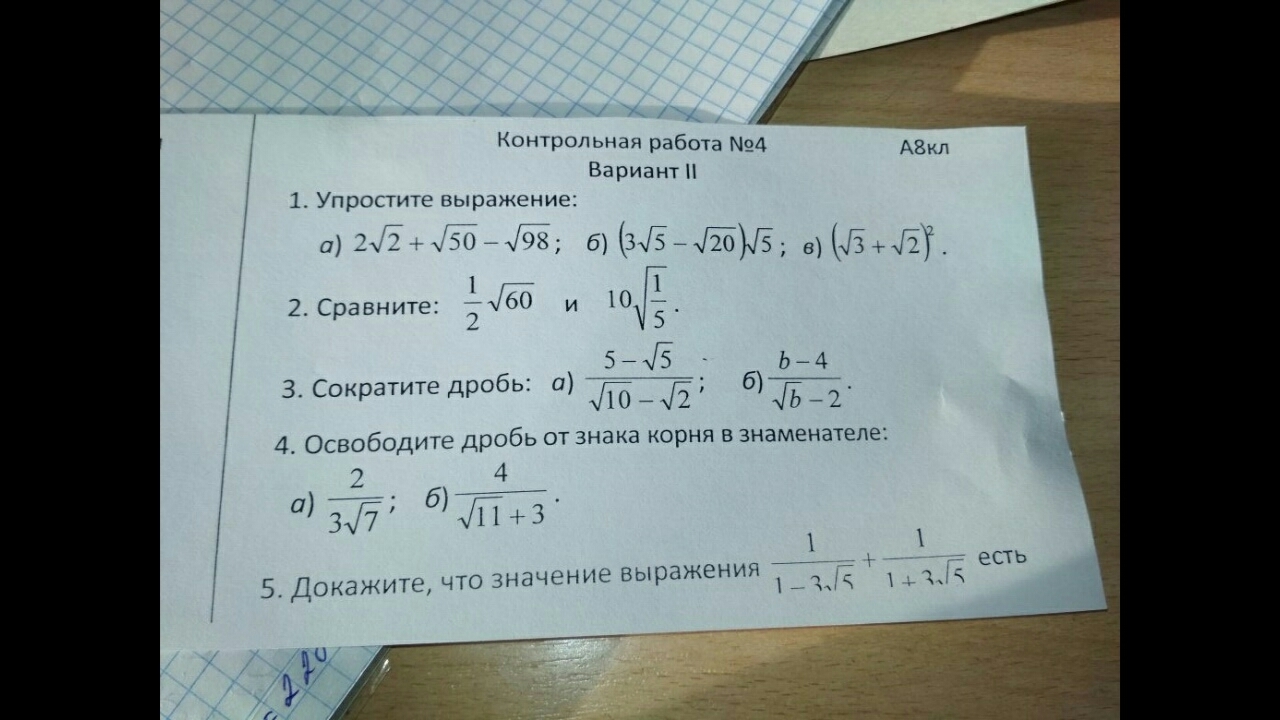 Контрольная работа №4 А8кл
Вариант II
1. Упростите выражение:
а) 2√2 + √50 − √98; б) (3√5 − √20)√5; в) (√3 + √2)².
2. Сравните: 1/2 √60 и 10√(1/5).
3. Сократите дробь: а) (5 − √5)/(√10 − √2); б) (b − 4)/(√b − 2).
4. Освободите дробь от знака корня в знаменателе:
а) 2/(3√7); б) 4/(√11 + 3).
5. Докажите, что значение выражения 1/(1 − 3√5) + 1/(1 + 3√5) есть
220